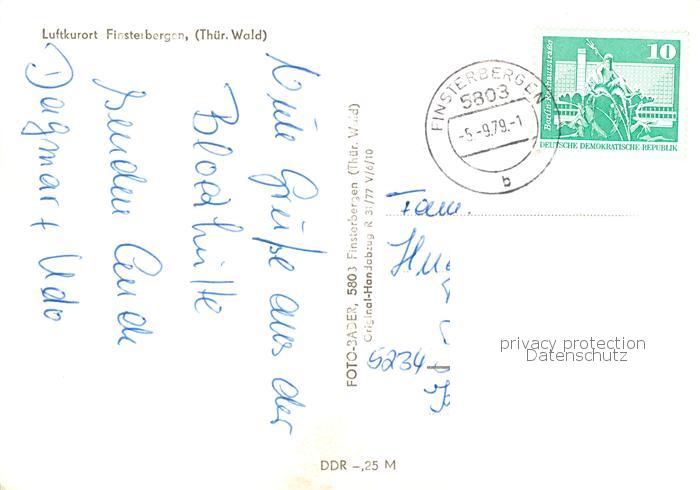 Luftkurort Finsterbergen, (Thür. Wald)
Viele Grüße aus der
Blockhütte
senden Euch
Dagmar + Udo
FOTO-BADER, 5803 Finsterbergen (Thür. Wald)
Original-Handabzug R 31/77 V/6/10
FINSTERBERGEN
5803
-5.-9.79.-1
b
10
Berlin, Rathausstraße
DEUTSCHE DEMOKRATISCHE REPUBLIK
Fam.
5234
privacy protection
Datenschutz
DDR -,25 M